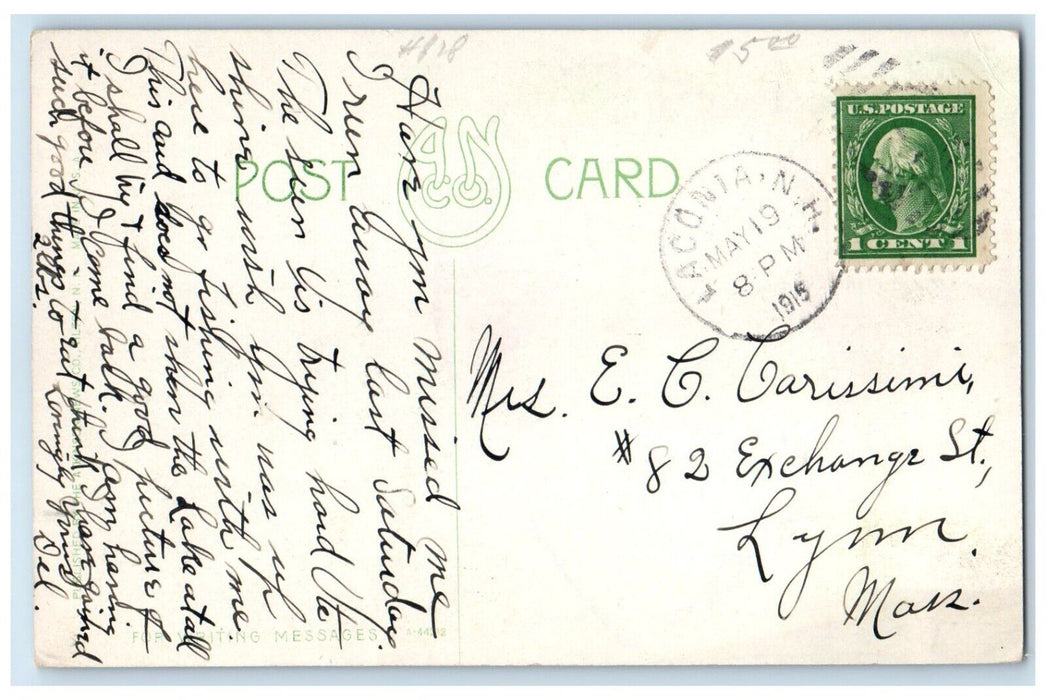 #828
5.00
POST CARD
A.N. CO.
LACONIA, N.H.
MAY 19
8 - PM
1915
U.S. POSTAGE
1 CENT 1
Mrs. E. C. Carissimi,
#82 Exchange St.,
Lynn.
Mass.
Have you missed me
I run away last Saturday.
The sun is trying hard to
shine wish you was up
here to go fishing with me
This card does not show the Lake at all
I shall try & find a good picture of
it before I come back. I am having
such good things to eat think I have gained
2 lbs. Lovingly yours
Del.
FOR WRITING MESSAGES